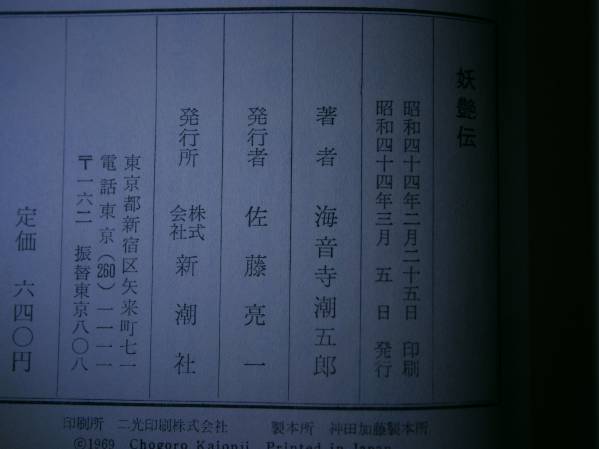 妖艶伝
昭和四十四年二月二十五日 印刷
昭和四十四年三月 五 日 発行
著者 海音寺潮五郎
発行者 佐藤亮一
発行所 株式会社 新潮社
東京都新宿区矢来町七一
電話東京(260)一一一一
〒一六二 振替東京八〇八
定価 六四〇円
印刷所 二光印刷株式会社 製本所 神田加藤製本所
©1969 Chogoro Kaionji Printed in Japan